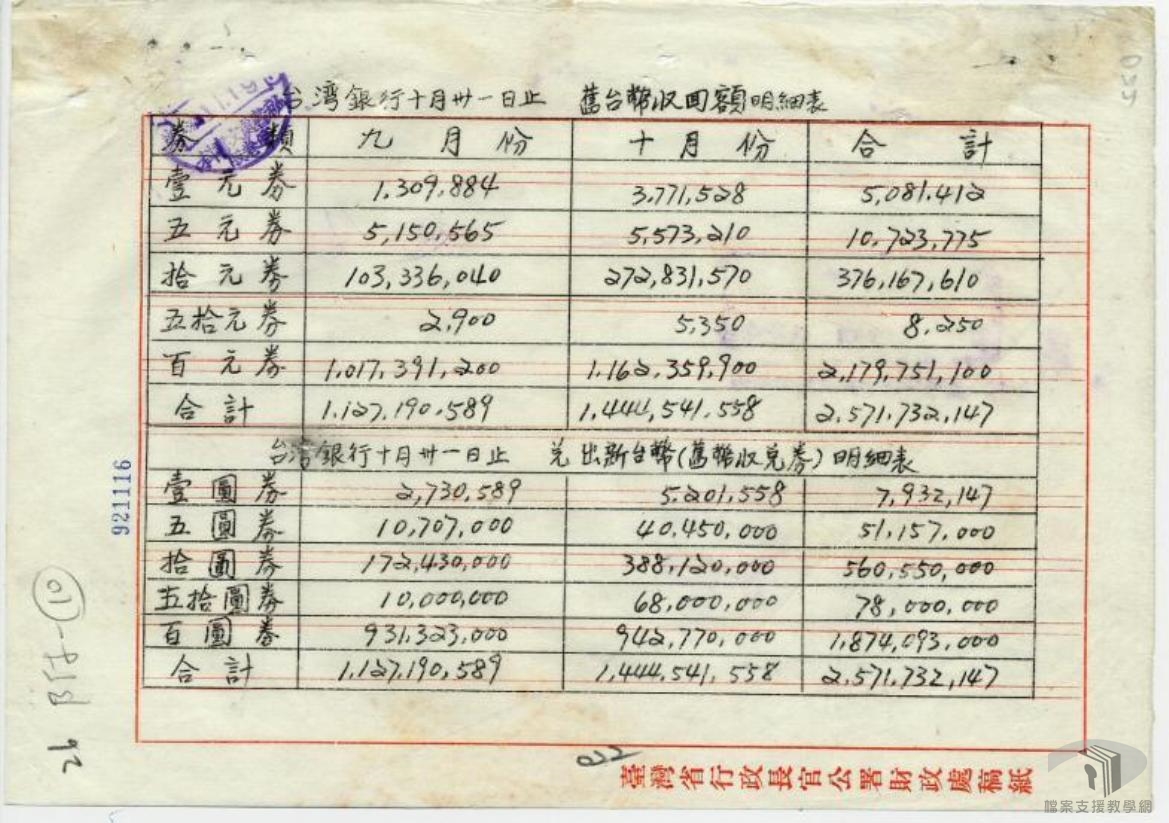 台湾銀行十月卅一日止 舊台幣收回額明細表
券類 九月份 十月份 合計
壹元券 1,309,884 3,771,528 5,081,412
五元券 5,150,565 5,573,210 10,723,775
拾元券 103,336,040 272,831,570 376,167,610
五拾元券 2,900 5,350 8,250
百元券 1,017,391,200 1,162,359,900 2,179,751,100
合計 1,127,190,589 1,444,541,558 2,571,732,147
台湾銀行十月卅一日止 兌出新台幣(舊幣收兌券)明細表
壹圓券 2,730,589 5,201,558 7,932,147
五圓券 10,707,000 40,450,000 51,157,000
拾圓券 172,430,000 388,120,000 560,550,000
五拾圓券 10,000,000 68,000,000 78,000,000
百圓券 931,323,000 942,770,000 1,874,093,000
合計 1,127,190,589 1,444,541,558 2,571,732,147
臺灣省行政長官公署財政處稿紙
921116
檔案支援教學網